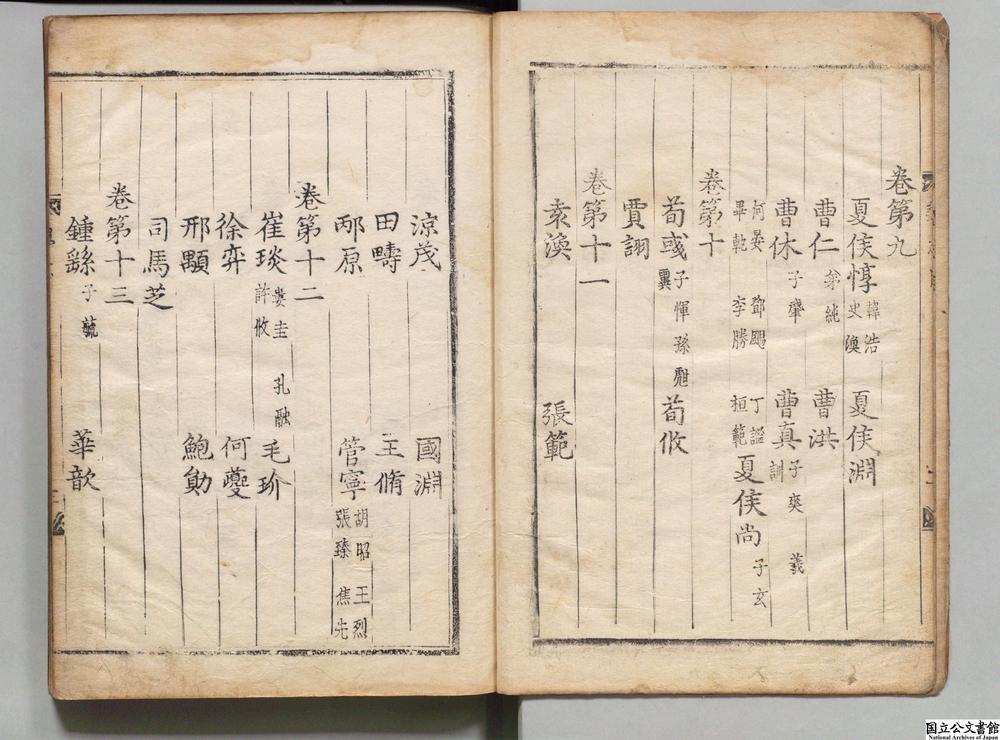 卷第九
夏侯惇 韓浩 史渙 夏侯淵
曹仁 弟純 曹洪
曹休 子肇 曹真 子爽 羲 訓
何晏 鄧颺 丁謐 畢軌 李勝 桓範 夏侯尚 子玄
卷第十
荀彧 子惲 孫甝 霬 荀攸
賈詡
卷第十一
袁渙 張範
涼茂 國淵
田疇 王脩
邴原 管寧 胡昭 王烈 張臻 焦先
卷第十二
崔琰 婁圭 孔融 許攸 毛玠
徐弈 何夔
邢顒 鮑勛
司馬芝
卷第十三
鍾繇 子毓 華歆
国立公文書館
National Archives of Japan